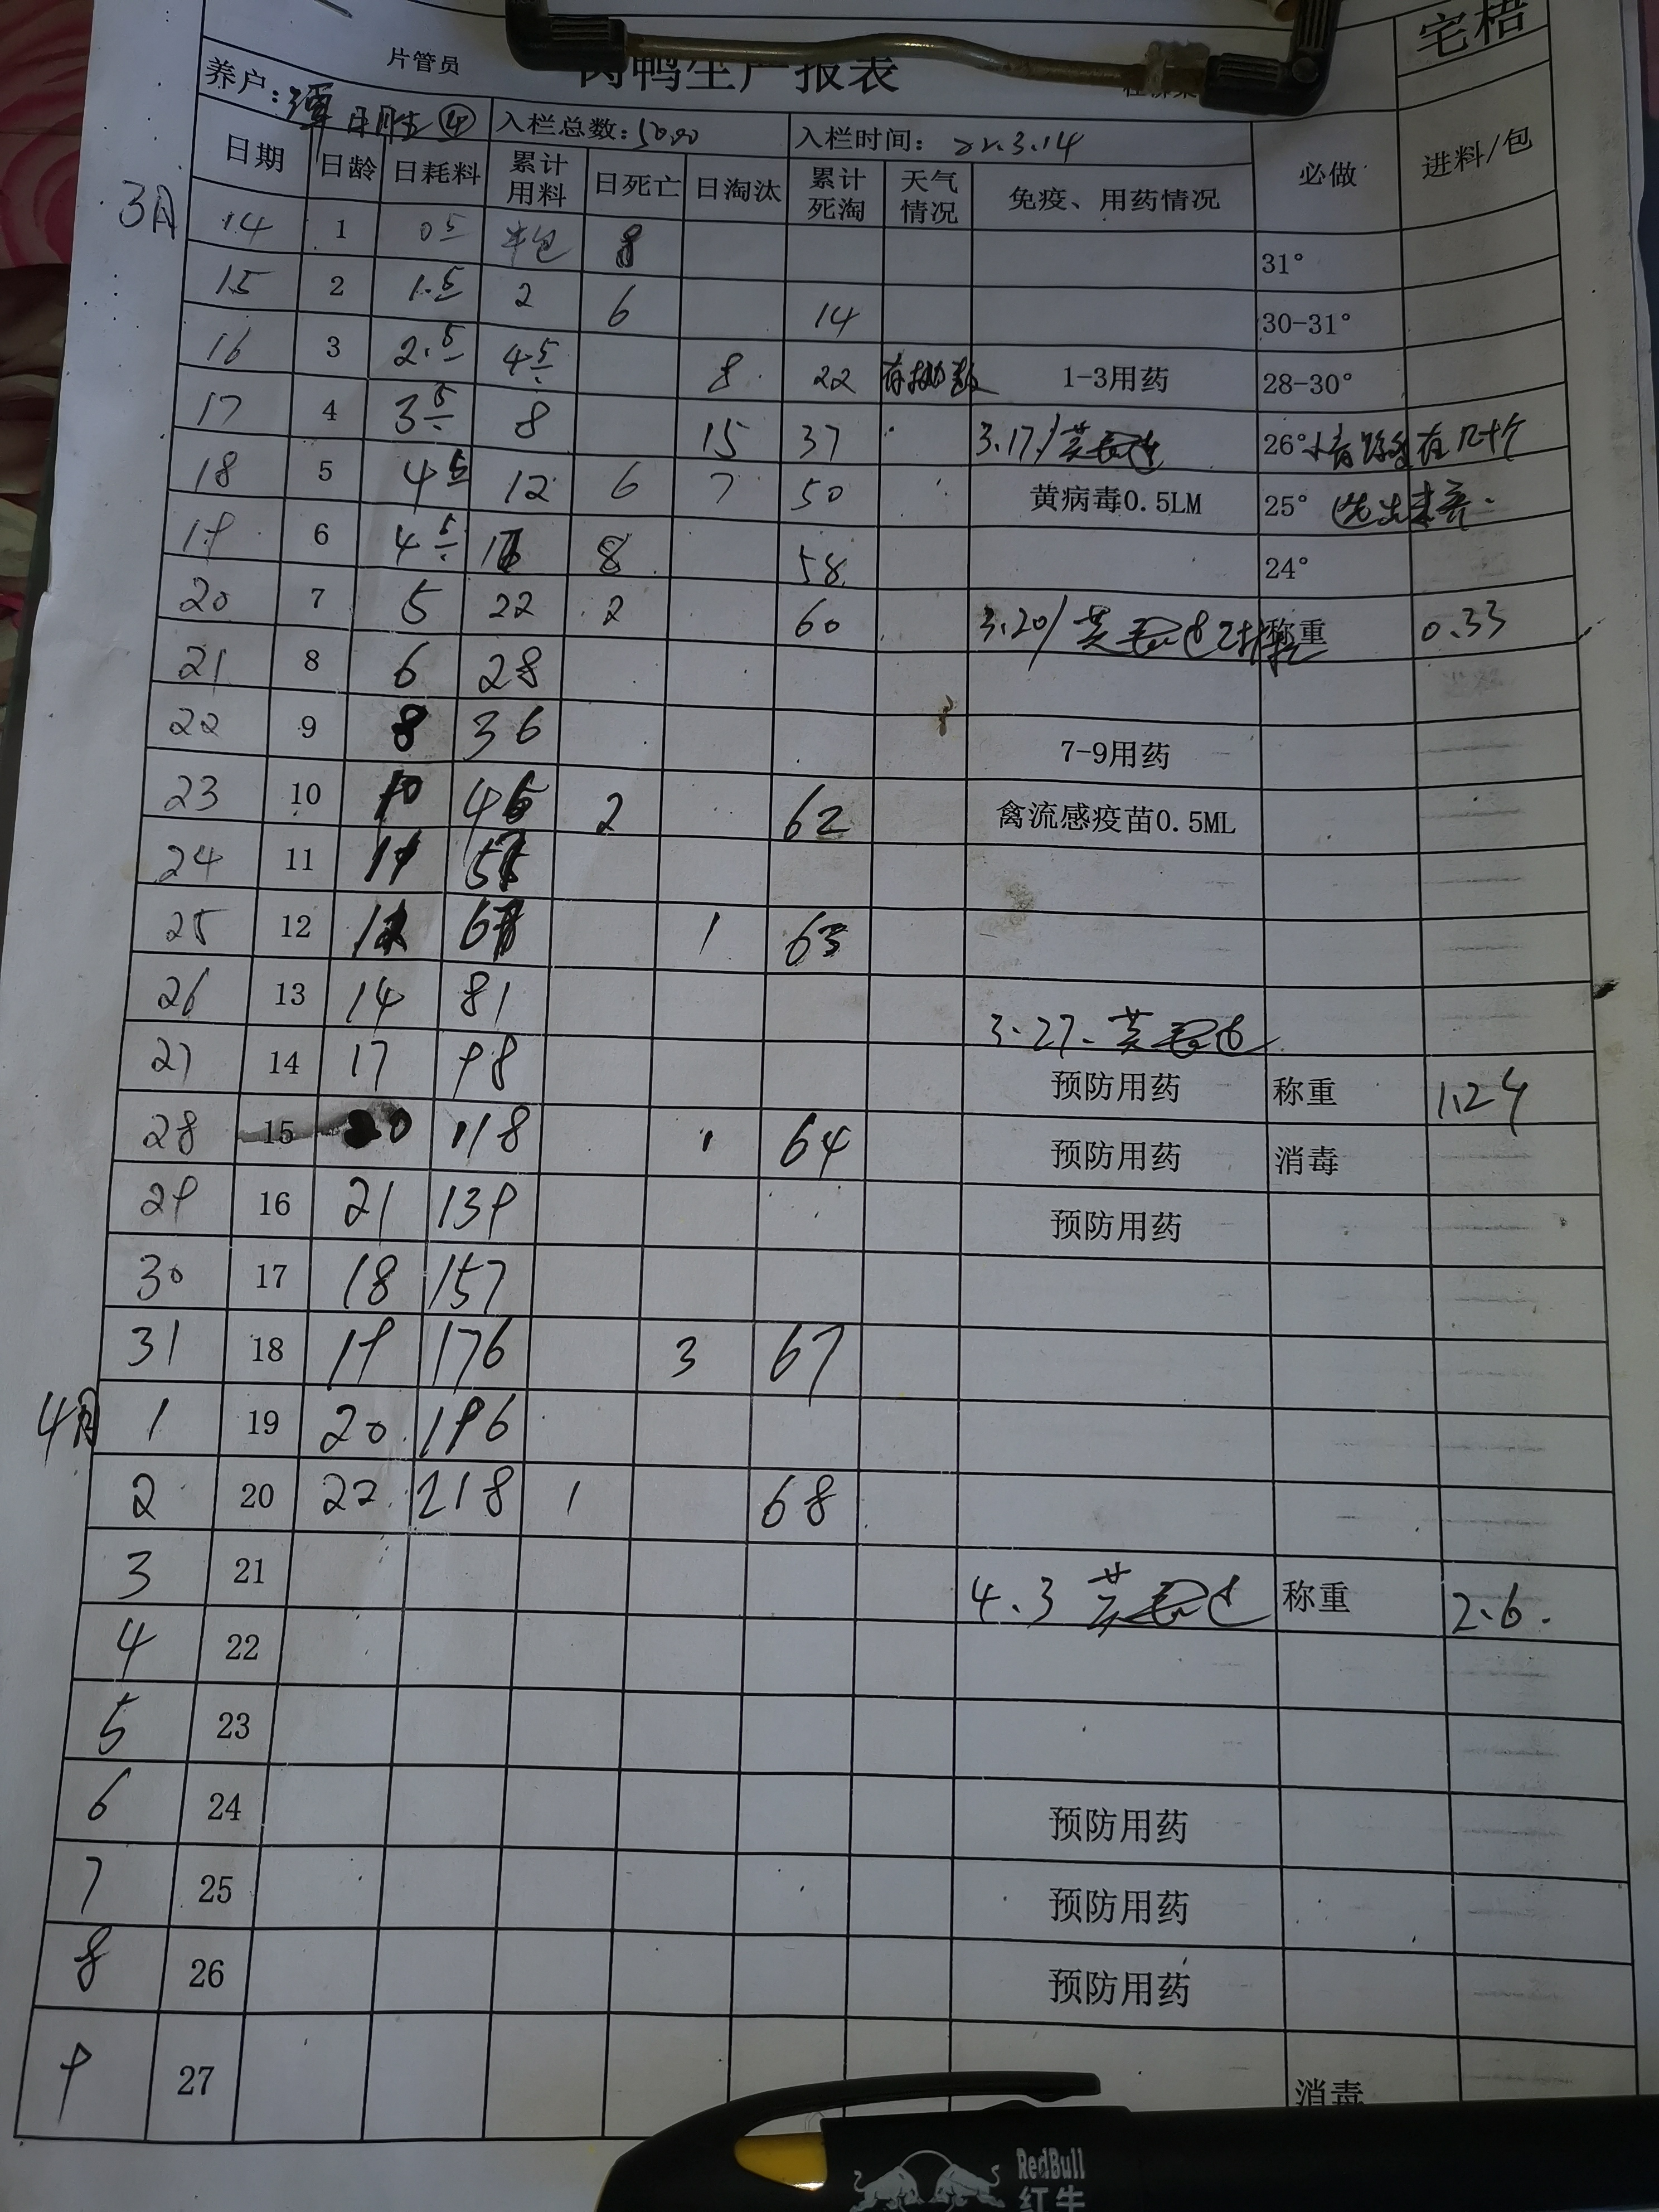 宅梧
片管员 肉鸭生产报表
养户: 入栏总数: 5000 入栏时间: 22.3.14
日期 日龄 日耗料 累计用料 日死亡 日淘汰 累计死淘 天气情况 免疫、用药情况 必做 进料/包
3月 14 1 0.5 半包 8 31°
15 2 1.5 2 6 14 30-31°
16 3 2.5 4.5 8 22 1-3用药 28-30°
17 4 3.5 8 15 37 3.17/ 26° 有几十个
18 5 4.5 12 6 7 50 黄病毒0.5LM 25°
19 6 4.5 8 58 24°
20 7 5 22 2 60 3.20/ 称重 0.33
21 8 6 28
22 9 8 36 7-9用药
23 10 10 46 2 62 禽流感疫苗0.5ML
24 11 11
25 12 1 63
26 13 14 81
3.27.
27 14 17 98 预防用药 称重 1.24
28 15 20 118 1 64 预防用药 消毒
29 16 21 139 预防用药
30 17 18 157
31 18 19 176 3 67
4月 1 19 20 196
2 20 22 218 1 68
3 21 4.3 称重 2.6.
4 22
5 23
6 24 预防用药
7 25 预防用药
8 26 预防用药
9 27 消毒
RedBull
红牛